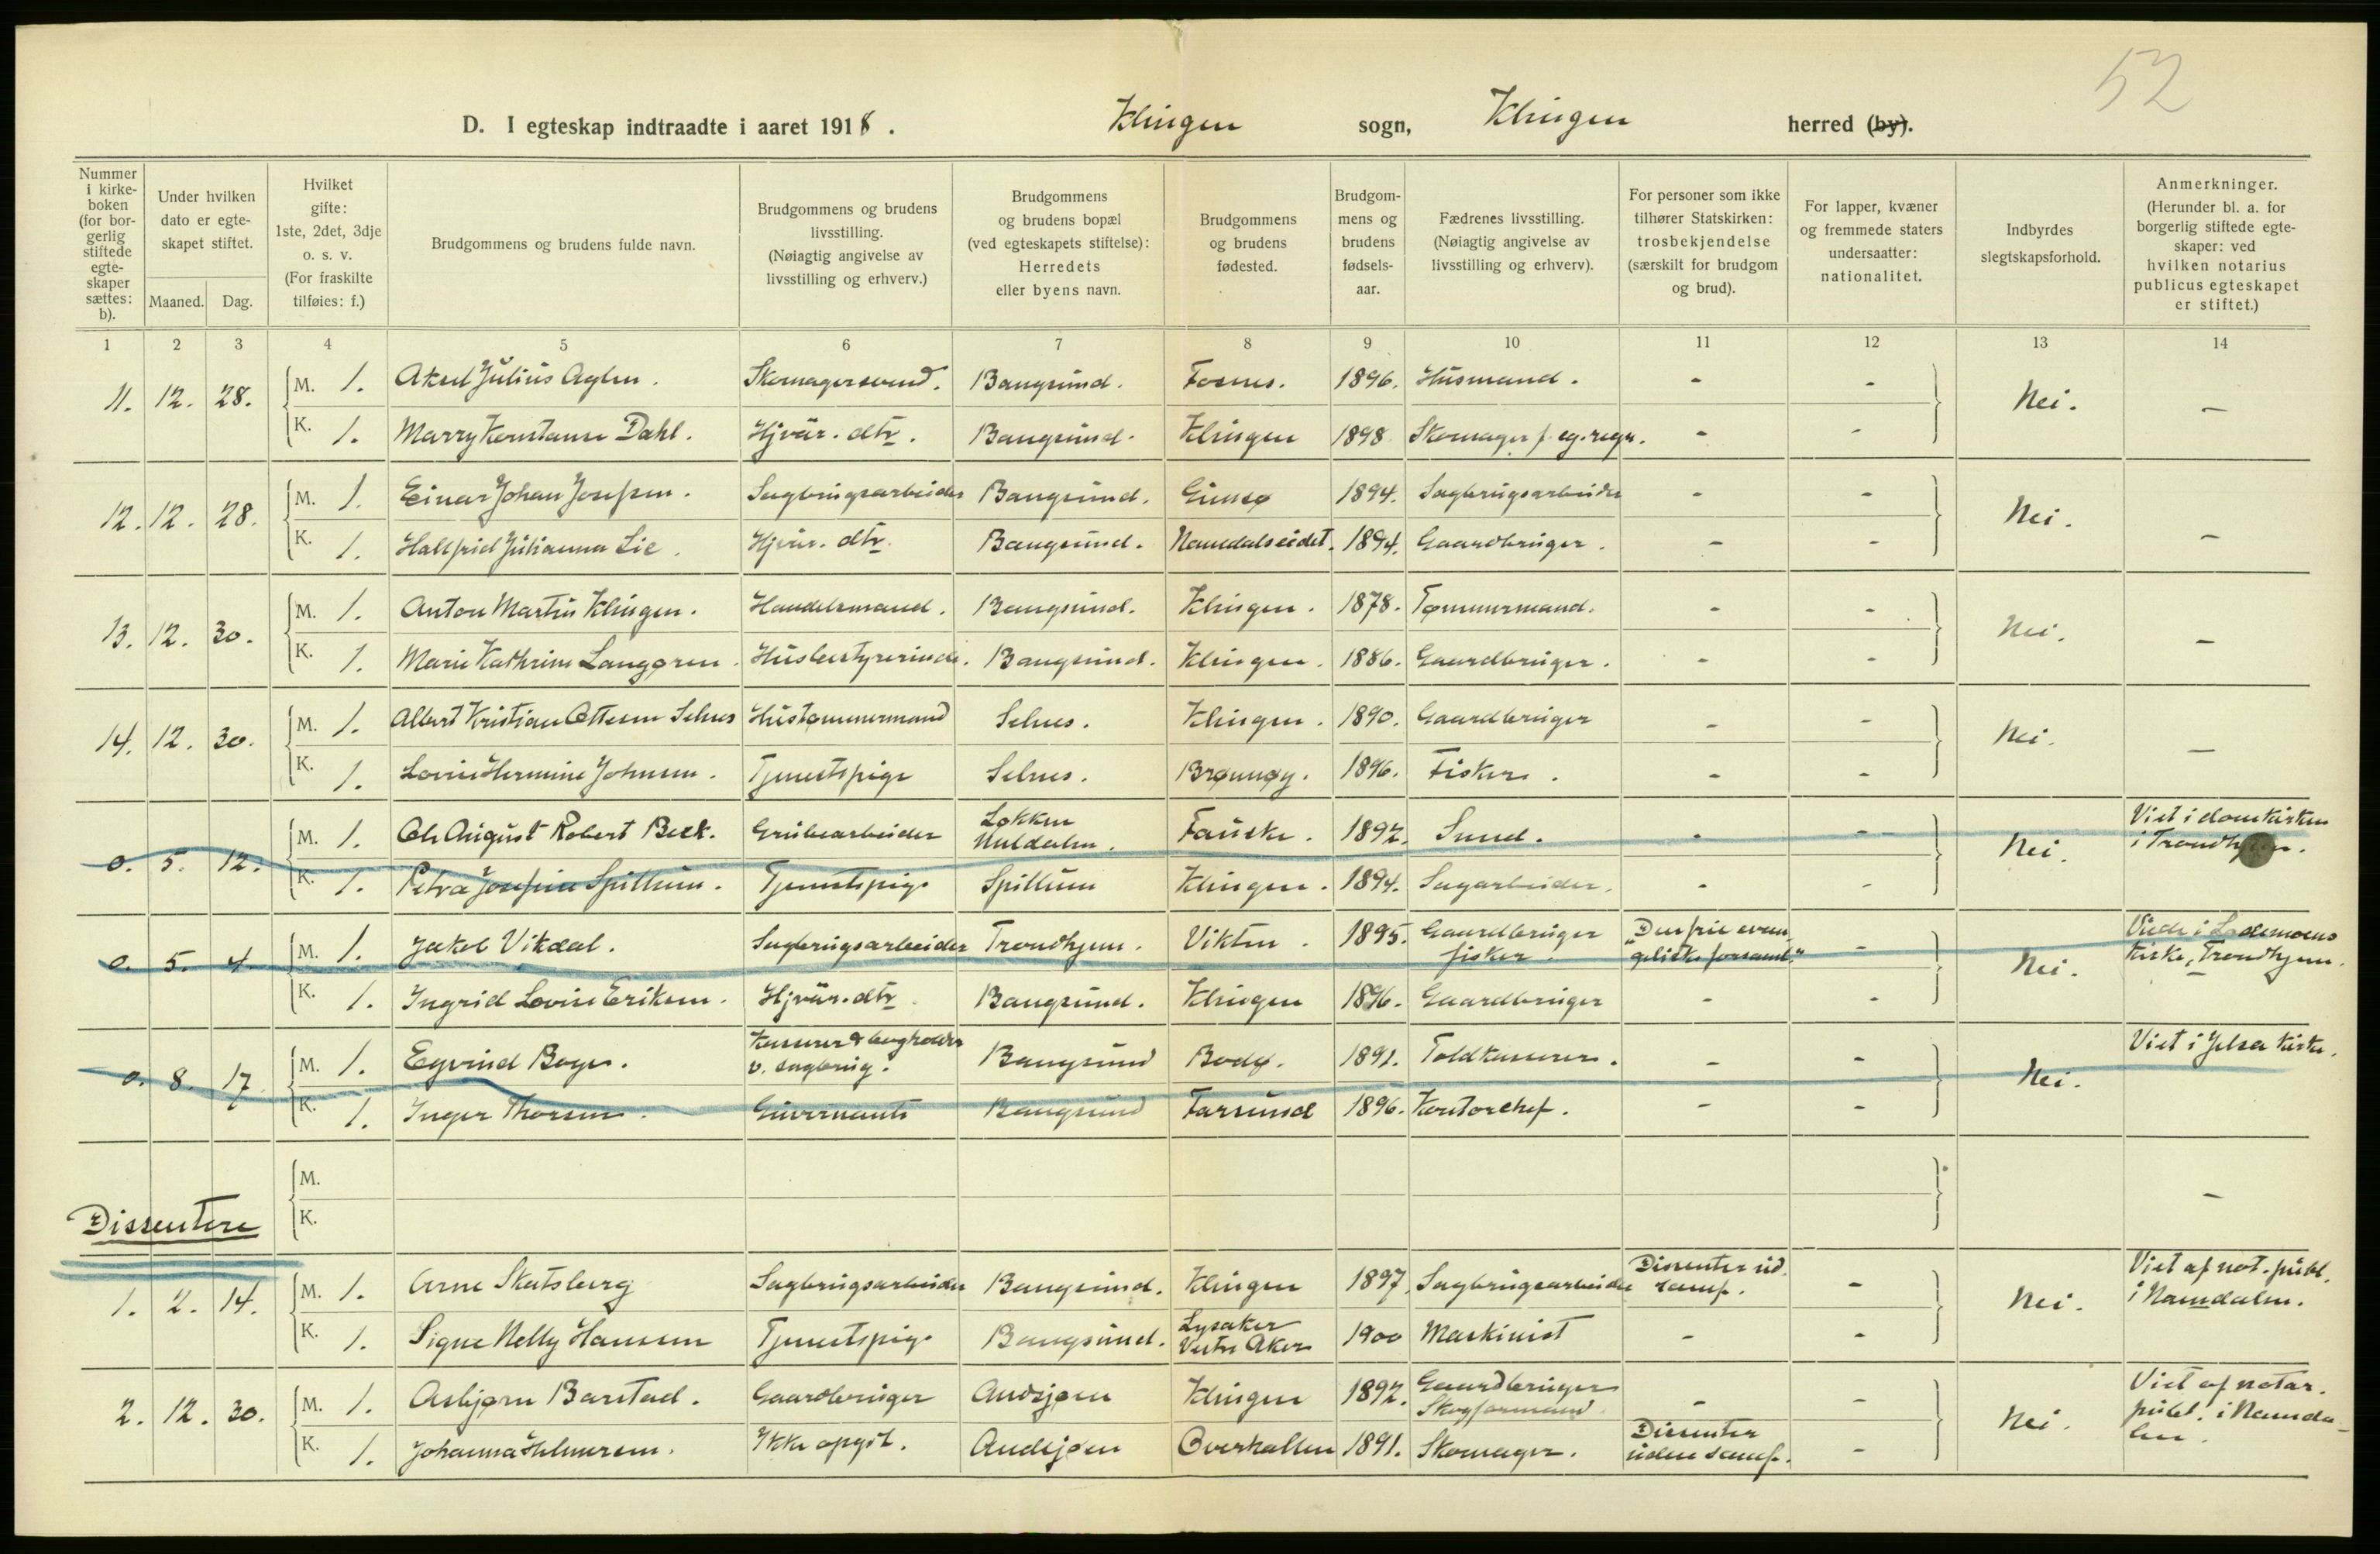 52
D. I egteskap indtraadte i aaret 1918. Klingen sogn, Klingen herred (by).
Nummer i kirkeboken (for borgerlig stiftede egteskaper sættes: b).
Under hvilken dato er egteskapet stiftet.
Maaned. Dag.
Hvilket gifte: 1ste, 2det, 3dje o. s. v. (For fraskilte tilføies: f.)
Brudgommens og brudens fulde navn.
Brudgommens og brudens livsstilling. (Nøiagtig angivelse av livsstilling og erhverv.)
Brudgommens og brudens bopæl (ved egteskapets stiftelse): Herredets eller byens navn.
Brudgommens og brudens fødested.
Brudgommens og brudens fødselsaar.
Fædrenes livsstilling. (Nøiagtig angivelse av livsstilling og erhverv).
For personer som ikke tilhører Statskirken: trosbekjendelse (særskilt for brudgom og brud).
For lapper, kvæner og fremmede staters undersaatter: nationalitet.
Indbyrdes slegtskapsforhold.
Anmerkninger. (Herunder bl. a. for borgerlig stiftede egteskaper: ved hvilken notarius publicus egteskapet er stiftet.)
1 2 3 4 5 6 7 8 9 10 11 12 13 14
11. 12. 28. M. 1. Aksel Julius Aglen. Skomagersvend. Bangsund. Fosnes. 1896. Husmand. - - Nei. -
K. 1. Marry Konstanse Dahl. Hjvær. dtr. Bangsund. Klingen 1898 Skomager f. eg. regn. - -
12. 12. 28. M. 1. Einar Johan Josefsen. Sagbrugsarbeider Bangsund. Gimsø 1894. Sagbrugsarbeider - - Nei. -
K. 1. Hallfrid Julianna Lie. Hjvær. dtr. Bangsund. Namdalseidet. 1894. Gaardbruger. - -
13. 12. 30. M. 1. Anton Martin Klingen. Handelsmand. Bangsund. Klingen. 1878. Tømmermand. - - Nei. -
K. 1. Marie Kathrine Langøren. Husbestyrerinde. Bangsund. Klingen. 1886. Gaardbruger. - -
14. 12. 30. M. 1. Albert Kristian Ottesen Selnes Hustømmermand Selnes. Klingen. 1890. Gaardbruger - - Nei. -
K. 1. Lovise Hermine Johnsen. Tjenestpige Selnes. Brønnøy. 1896. Fisker. - -
0. 5. 12. M. 1. Ole August Robert Beck. Grubearbeider Løkken Meldalen. Fauske. 1892. Smed. - - Nei. Viet i domkirken i Trondhjem.
K. 1. Petra Josefine Spillum. Tjenestpige Spillum Klingen. 1894. Sagarbeider. - -
0. 5. 4. M. 1. Jakob Vikdal. Sagbrugsarbeider Trondhjem. Vikten. 1895. Gaardbruger fisker. "Den frie evangeliske forsaml." - Nei. Viede i Lademoens kirke, Trondhjem.
K. 1. Ingrid Lovise Eriksen. Hjvær. dtr Bangsund. Klingen 1896. Gaardbruger - -
0. 8. 17 M. 1. Eyvind Boye. Kasserer & bogholder v. sagbrug. Bangsund Bodø. 1891. Toldkasserer. - - Nei. Viet i Jelsa kirke.
K. 1. Inger Thorsen. Guvernante Bangsund Farsund 1896. Kontorchef. - -
M.
K. -
Dissentere
1. 2. 14. M. 1. Arne Skatsberg Sagbrugsarbeider Bangsund. Klingen 1897. Sagbrugsarbeider Dissenter ud. samf. - Nei. Viet af not. publ. i Namdalen.
K. 1. Signe Nelly Hansen Tjenestpige Bangsund. Lysaker Vestre Aker 1900 Maskinist - -
2. 12. 30. M. 1. Asbjørn Barstad. Gaardbruger Audsjøen Klingen 1892. Gaardbruger Skogformand - - Nei. Viet af notar. publ. i Namdalen.
K. 1. Johanna Helmersen. Ikke opgit. Audsjøen Overhallen 1891. Skomager. Dissenter uden samf. -